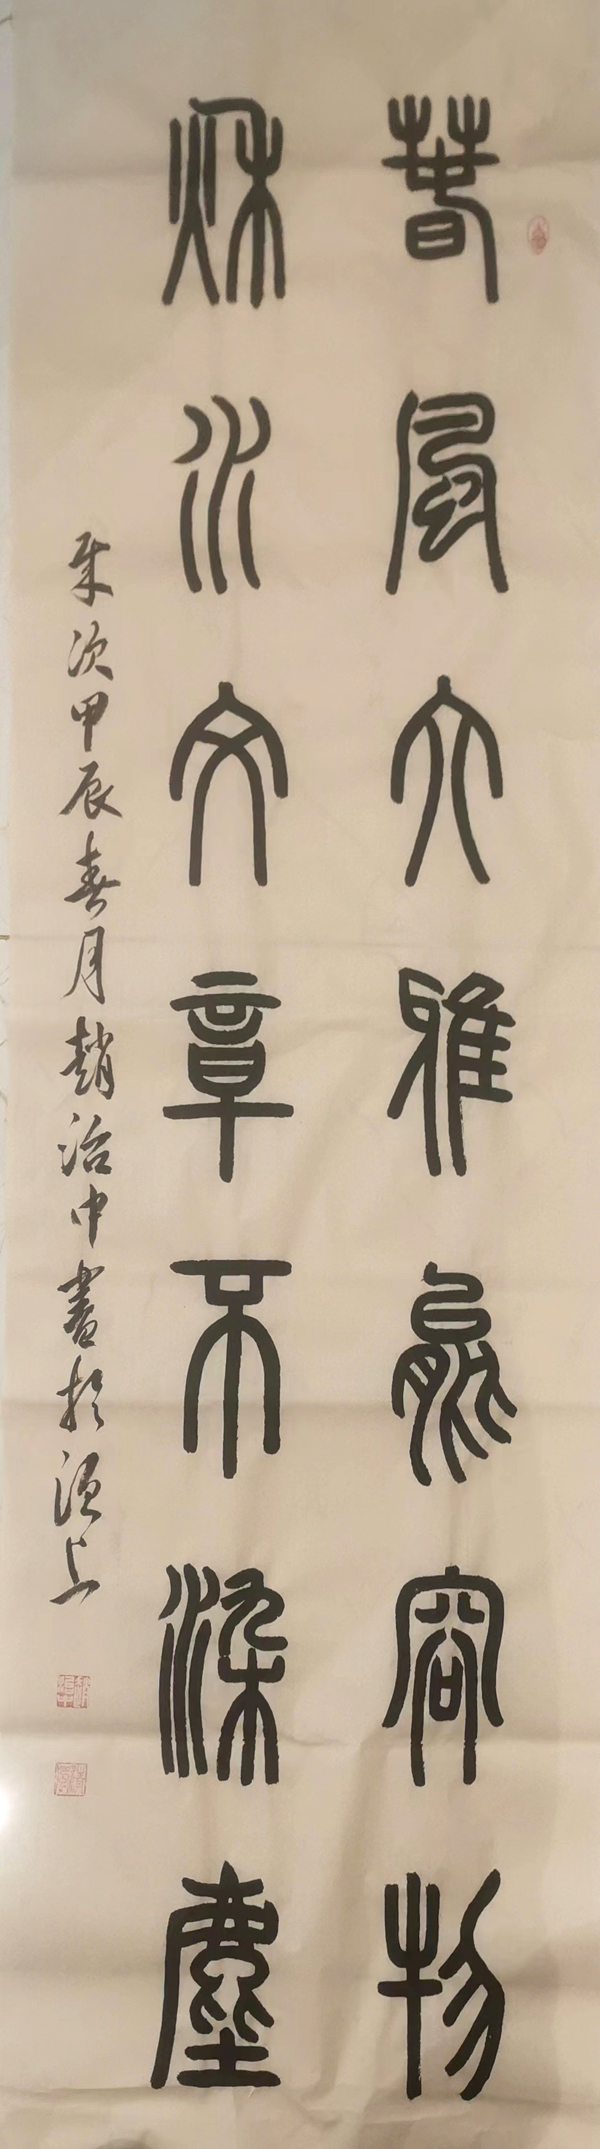 春風大雅能容物
秋水文章不染塵
歲次甲辰春月趙治中書於須上